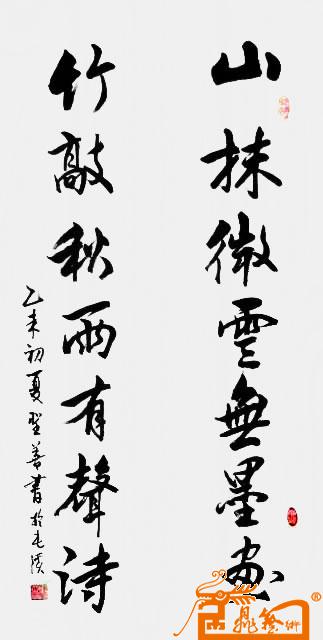 山抹微雲無墨畫
竹敲秋雨有聲詩
乙未初夏聖善書於毛濱